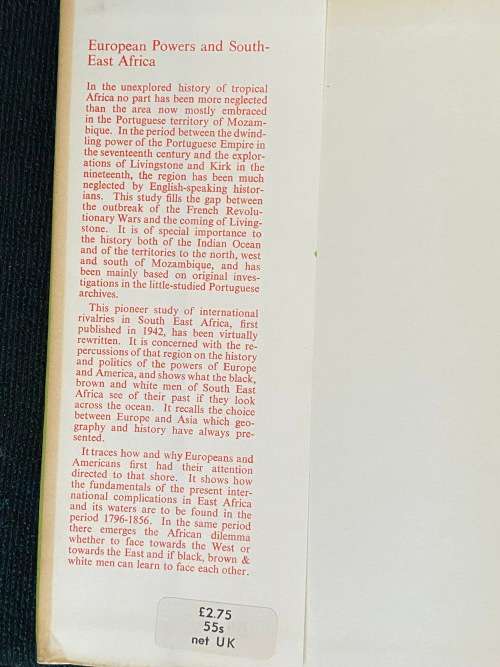 European Powers and South-
East Africa
In the unexplored history of tropical
Africa no part has been more neglected
than the area now mostly embraced
in the Portuguese territory of Mozam-
bique. In the period between the dwind-
ling power of the Portuguese Empire in
the seventeenth century and the explor-
ations of Livingstone and Kirk in the
nineteenth, the region has been much
neglected by English-speaking histor-
ians. This study fills the gap between
the outbreak of the French Revolu-
tionary Wars and the coming of Living-
stone. It is of special importance to
the history both of the Indian Ocean
and of the territories to the north, west
and south of Mozambique, and has
been mainly based on original inves-
tigations in the little-studied Portuguese
archives.
This pioneer study of international
rivalries in South East Africa, first
published in 1942, has been virtually
rewritten. It is concerned with the re-
percussions of that region on the history
and politics of the powers of Europe
and America, and shows what the black,
brown and white men of South East
Africa see of their past if they look
across the ocean. It recalls the choice
between Europe and Asia which geo-
graphy and history have always pre-
sented.
It traces how and why Europeans and
Americans first had their attention
directed to that shore. It shows how
the fundamentals of the present inter-
national complications in East Africa
and its waters are to be found in the
period 1796-1856. In the same period
there emerges the African dilemma
whether to face towards the West or
towards the East and if black, brown &
white men can learn to face each other.
£2.75
55s
net UK